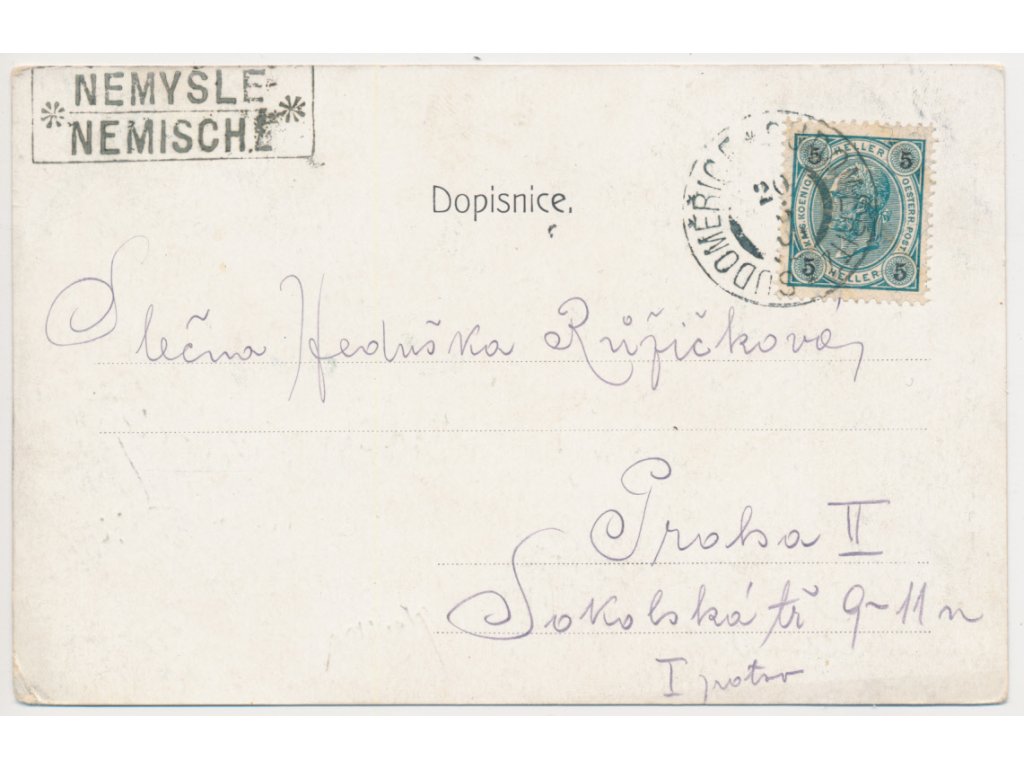 NEMYŠLE
* NEMISCHL *
Dopisnice.
SUDOMĚŘICE
20
5 HELLER 5
KAIS. KOENIGL. OESTERR. POST.
5 HELLER 5
Slečna Heduška Růžičkova,
Praha II
Sokolská tř 9-11 n
I patro